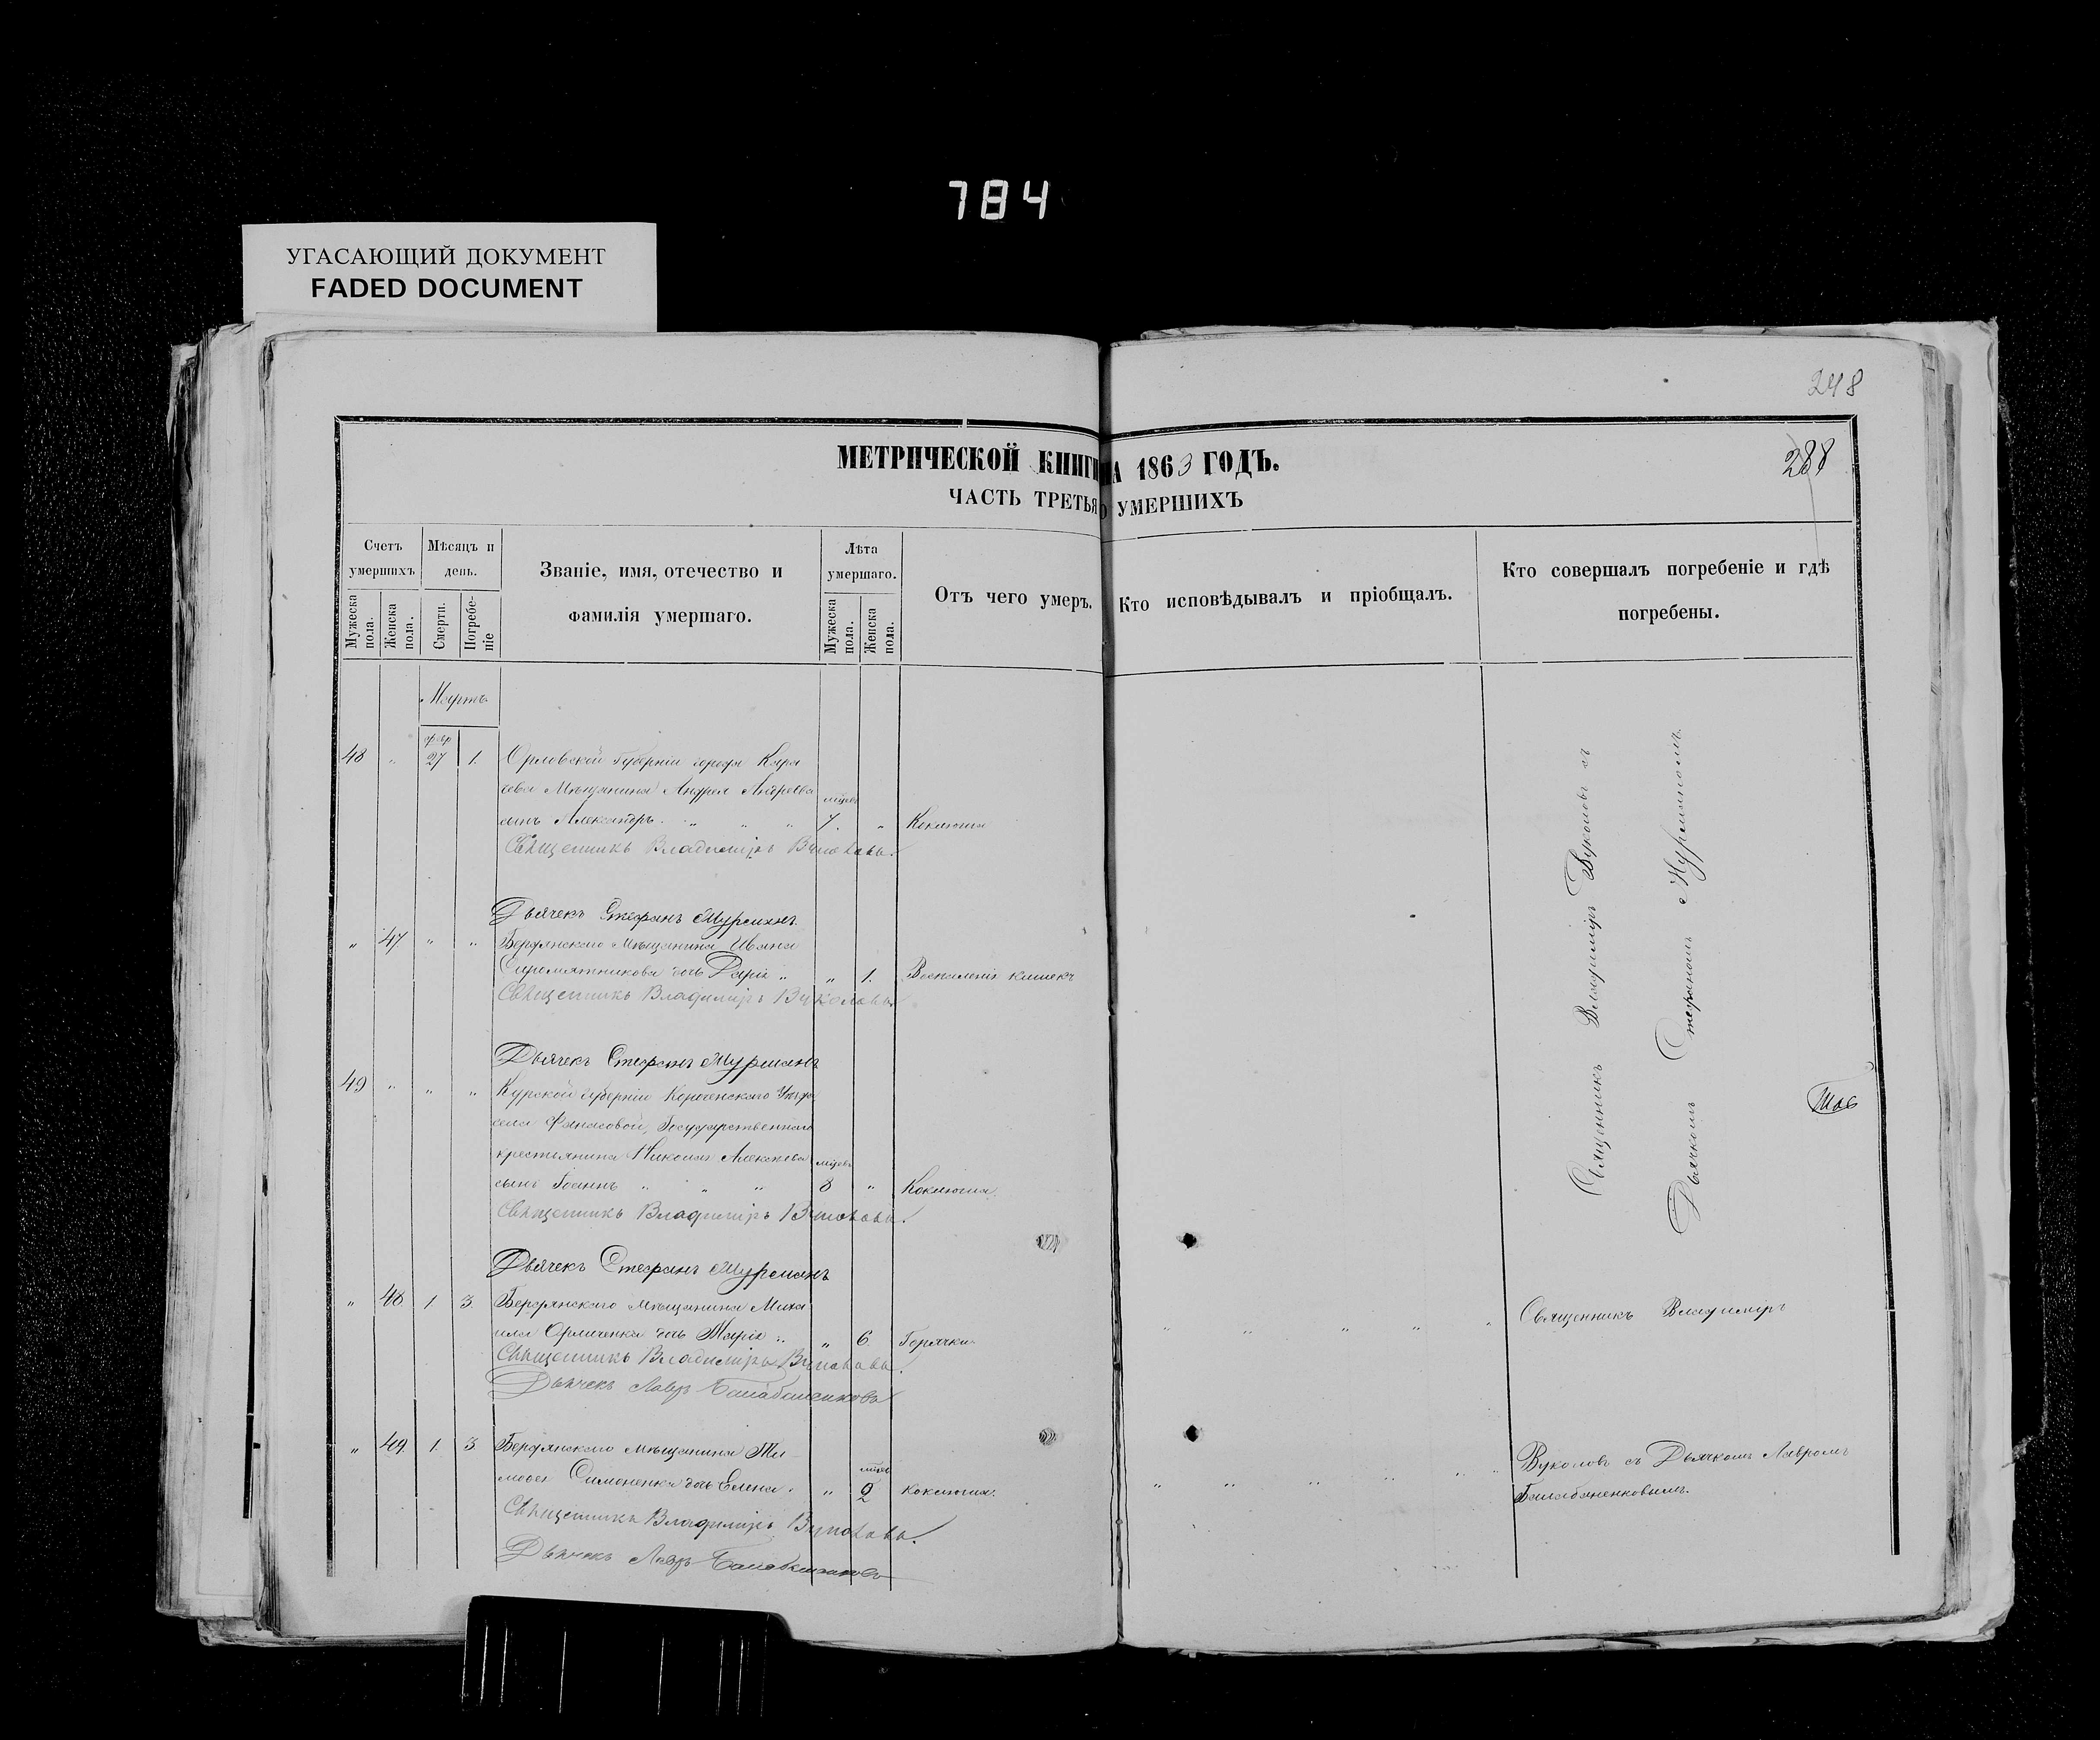 784
УГАСАЮЩИЙ ДОКУМЕНТ
FADED DOCUMENT
248
288
МЕТРИЧЕСКОЙ КНИГИ НА 1863 ГОДЪ.
ЧАСТЬ ТРЕТЬЯ О УМЕРШИХЪ
Счетъ умершихъ
Мужеска пола.
Женска пола.
Мѣсяцъ и день.
Смерти.
Погребеніе
Званіе, имя, отечество и фамилія умершаго.
Лѣта умершаго.
Мужеска пола.
Женска пола.
Отъ чего умеръ.
Кто исповѣдывалъ и пріобщалъ.
Кто совершалъ погребеніе и гдѣ погребены.
Мартъ
февр
48 " 27 1. Орловской Губерніи города Кара
чева Мѣщанина Андрея Андреева мѣсяц
сынъ Александръ. " " " 7. " Коклюша
Священникъ Владиміръ Вуколовъ.
Дьячекъ Стефанъ Мурманъ
" 47 " " Бердянскаго Мѣщанина Ивана
Сыромятникова дочь Дарія " " 1. Воспаленія кишекъ
Священникъ Владиміръ Вуколовъ.
Дьячекъ Стефанъ Мурманъ
49 " " " Курской Губерніи Короченскаго Уѣзда
села Фанасовой, Государственнаго
крестьянина Николая Алексѣева мѣсяц
сынъ Іоаннъ " " " 8 " Коклюша.
Священникъ Владиміръ Вуколовъ.
Дьячекъ Стефанъ Мурманъ
" 48 1. 3. Бердянскаго мѣщанина Миха
ила Орличенка дочь Марія " " 6. Горячки
Священникъ Владиміръ Вуколовъ.
Дьячекъ Лавръ Балабаненковъ
" 49. 1. 3 Бердянскаго мѣщанина Ти
мофея Симоненка дочь Елена. " 2 коклюша.
Священникъ Владиміръ Вуколовъ.
Дьячекъ Лавръ Балабаненковъ
Священникъ Владиміръ Вуколовъ съ
Дьячкомъ Стефаномъ Мурманомъ
Священникъ Владиміръ
Вуколовъ съ Дьячкомъ Лавромъ
Балабаненковымъ.